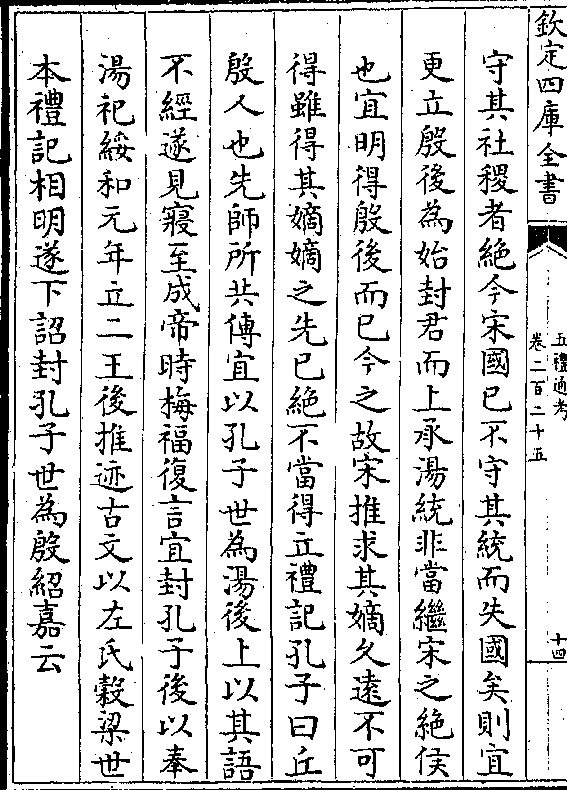 欽定四庫全書
五禮通考
卷二百二十五
十四
守其社稷者絶今宋國已不守其統而失國矣則宜
更立殷後為始封君而上承湯統非當繼宋之絶侯
也宜明得殷後而已今之故宋推求其嫡久逺不可
得雖得其嫡嫡之先已絶不當得立禮記孔子曰丘
殷人也先師所共傳宜以孔子世為湯後上以其語
不經遂見寢至成帝時梅福復言宜封孔子後以奉
湯祀綏和元年立二王後推迹古文以左氏榖梁世
本禮記相明遂下詔封孔子世為殷紹嘉云